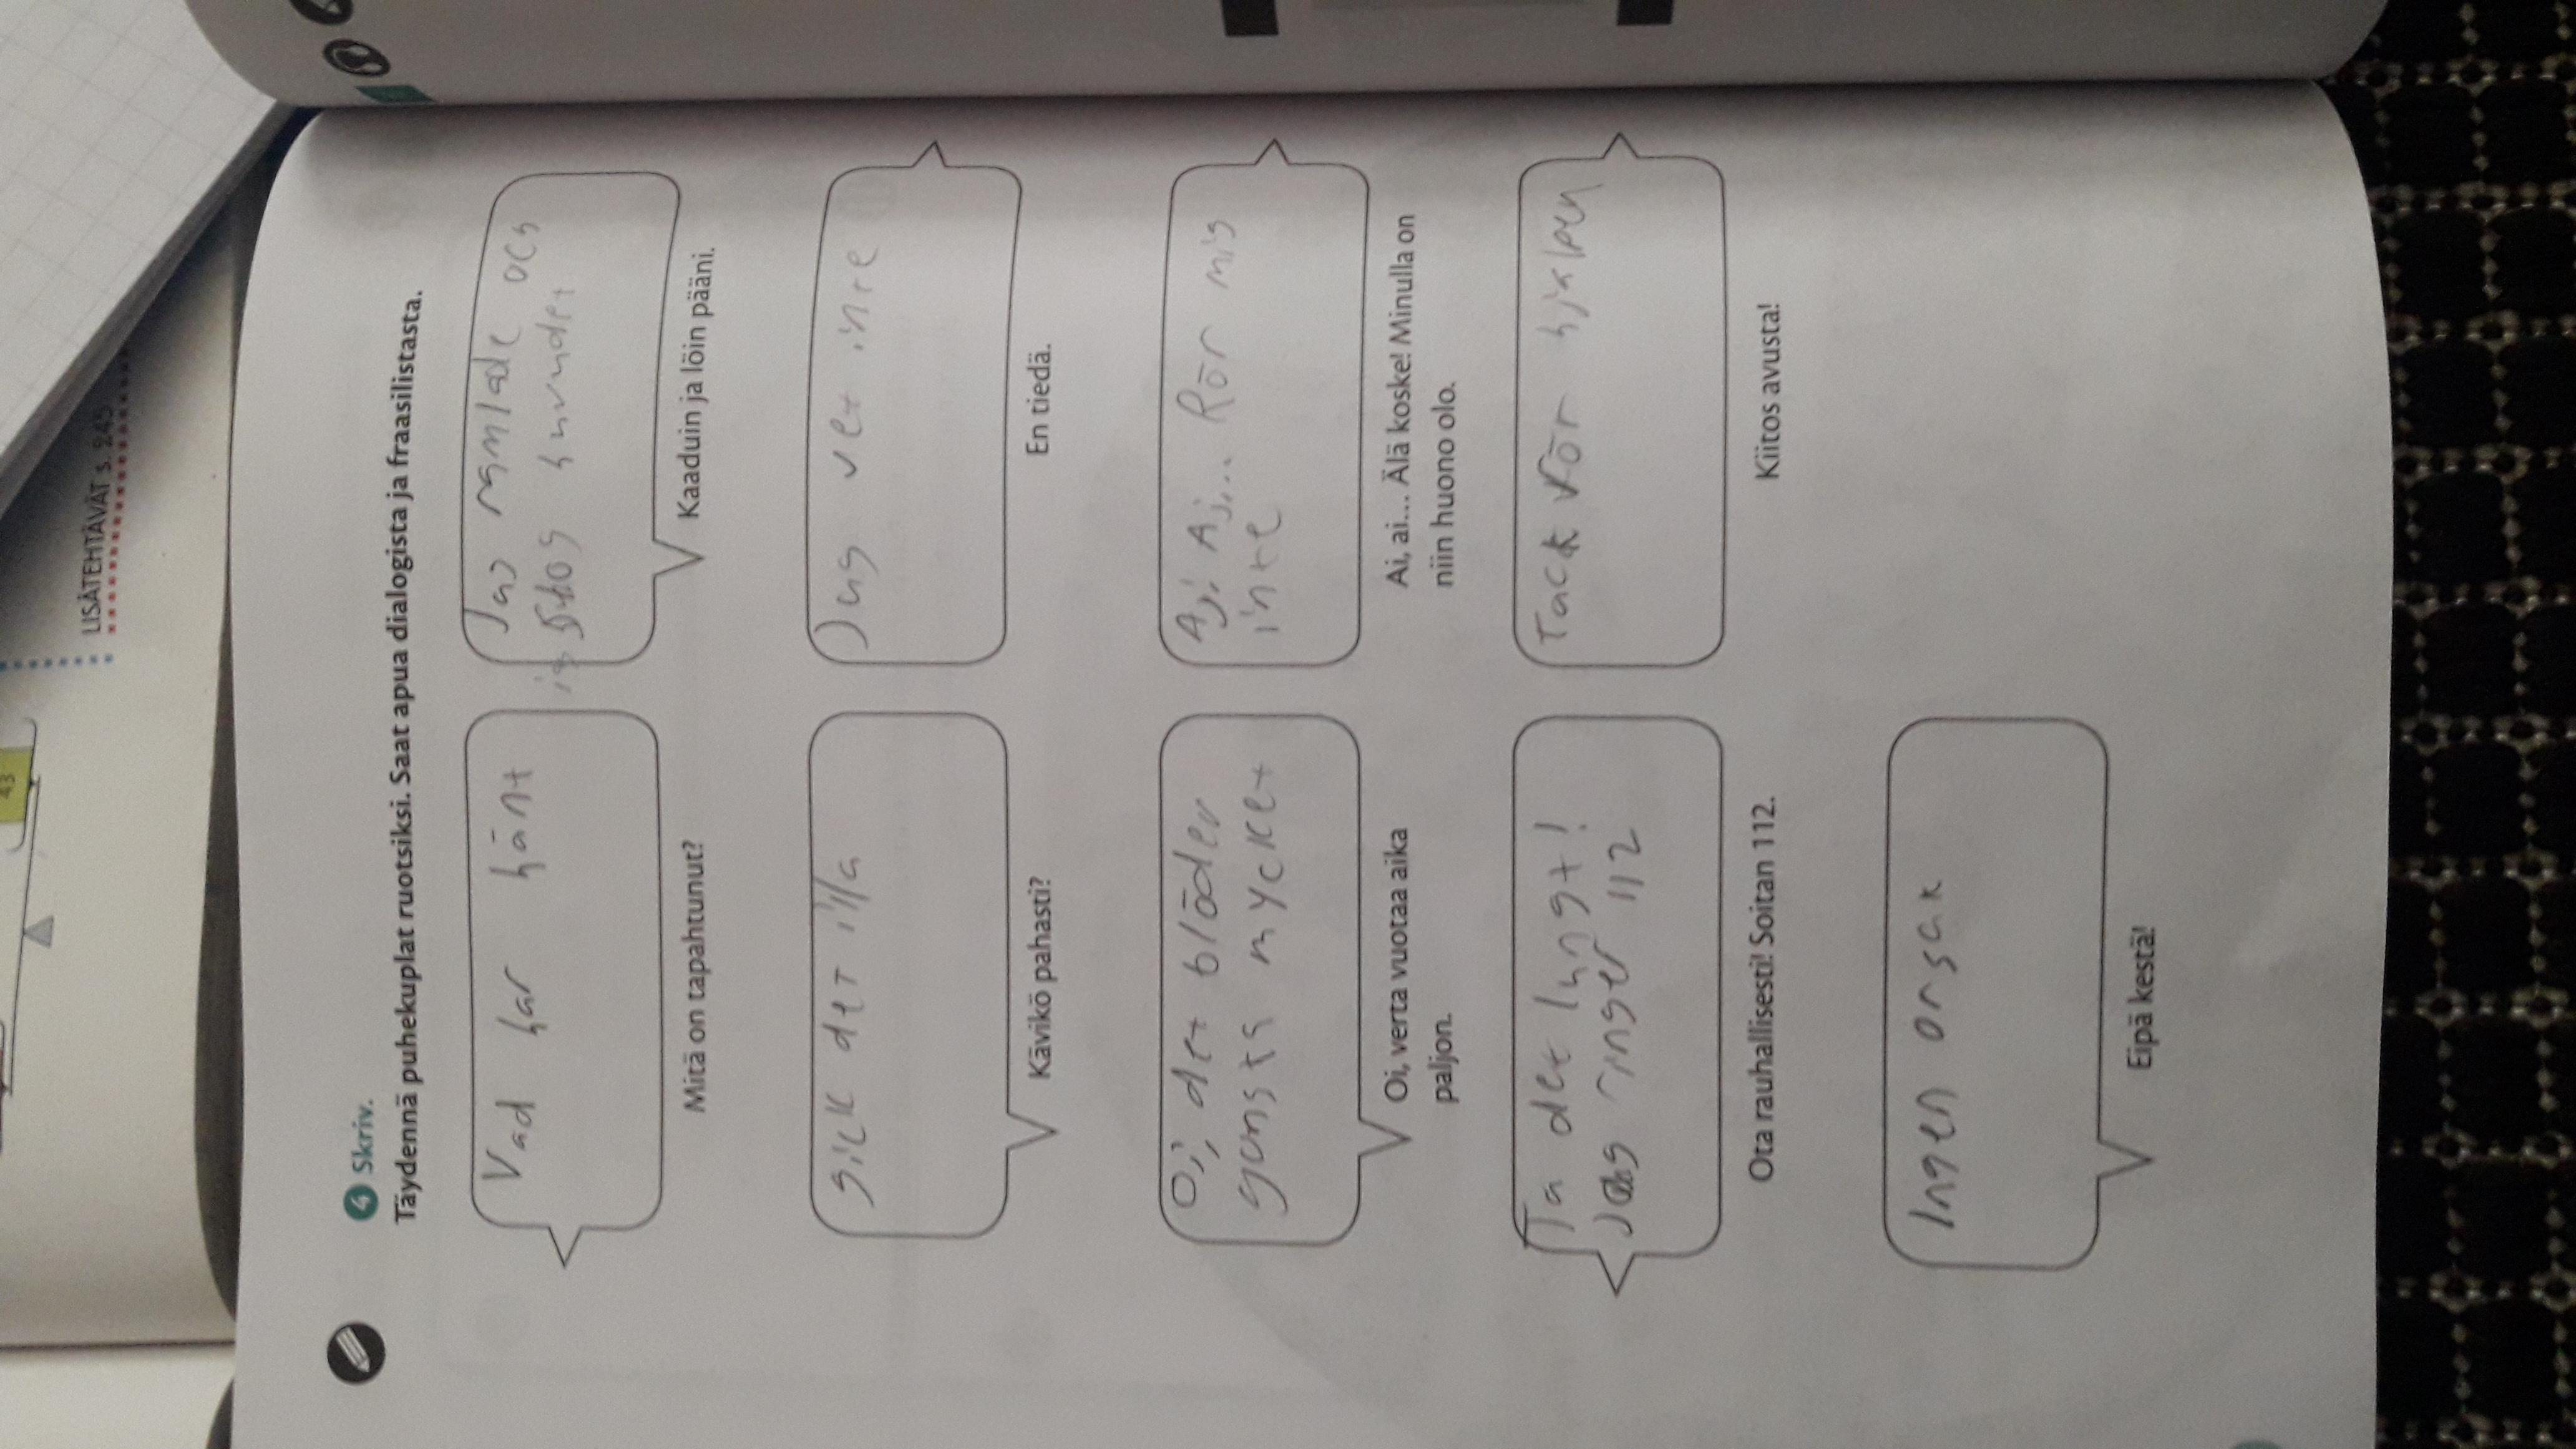 LISÄTEHTÄVÄT s. 245
43
4 Skriv.
Täydennä puhekuplat ruotsiksi. Saat apua dialogista ja fraasilistasta.
Vad har hänt
Mitä on tapahtunut?
Jag ramlade och
slog huvudet
Kaaduin ja löin pääni.
gick det illa
Kävikö pahasti?
Jag vet inte
En tiedä.
Oj, det blöder
ganska mycket
Oi, verta vuotaa aika
paljon.
Aj, Aj... Rör mig
inte
Ai, ai... Älä koske! Minulla on
niin huono olo.
Ta det lungt!
Jag ringer 112
Ota rauhallisesti! Soitan 112.
Tack för hjälpen
Kiitos avusta!
Ingen orsak
Eipä kestä!